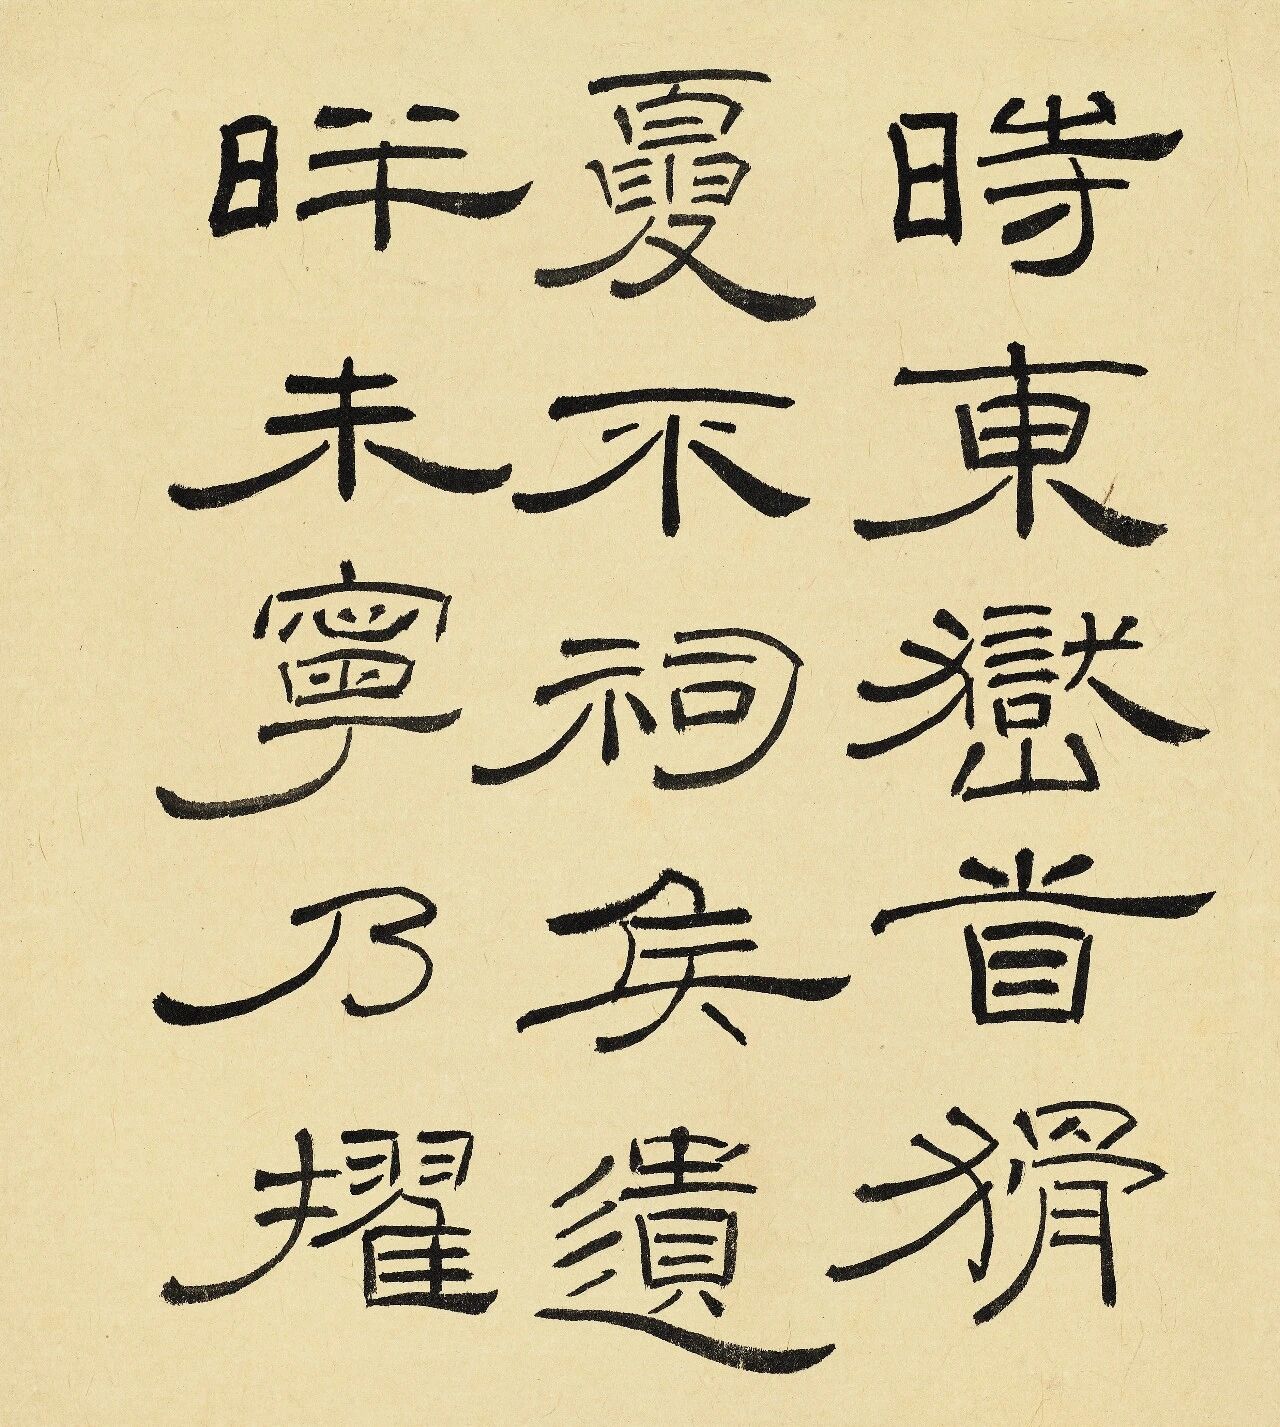 時東嶽首猾
夏不祠矦遺
畔未寧乃擢